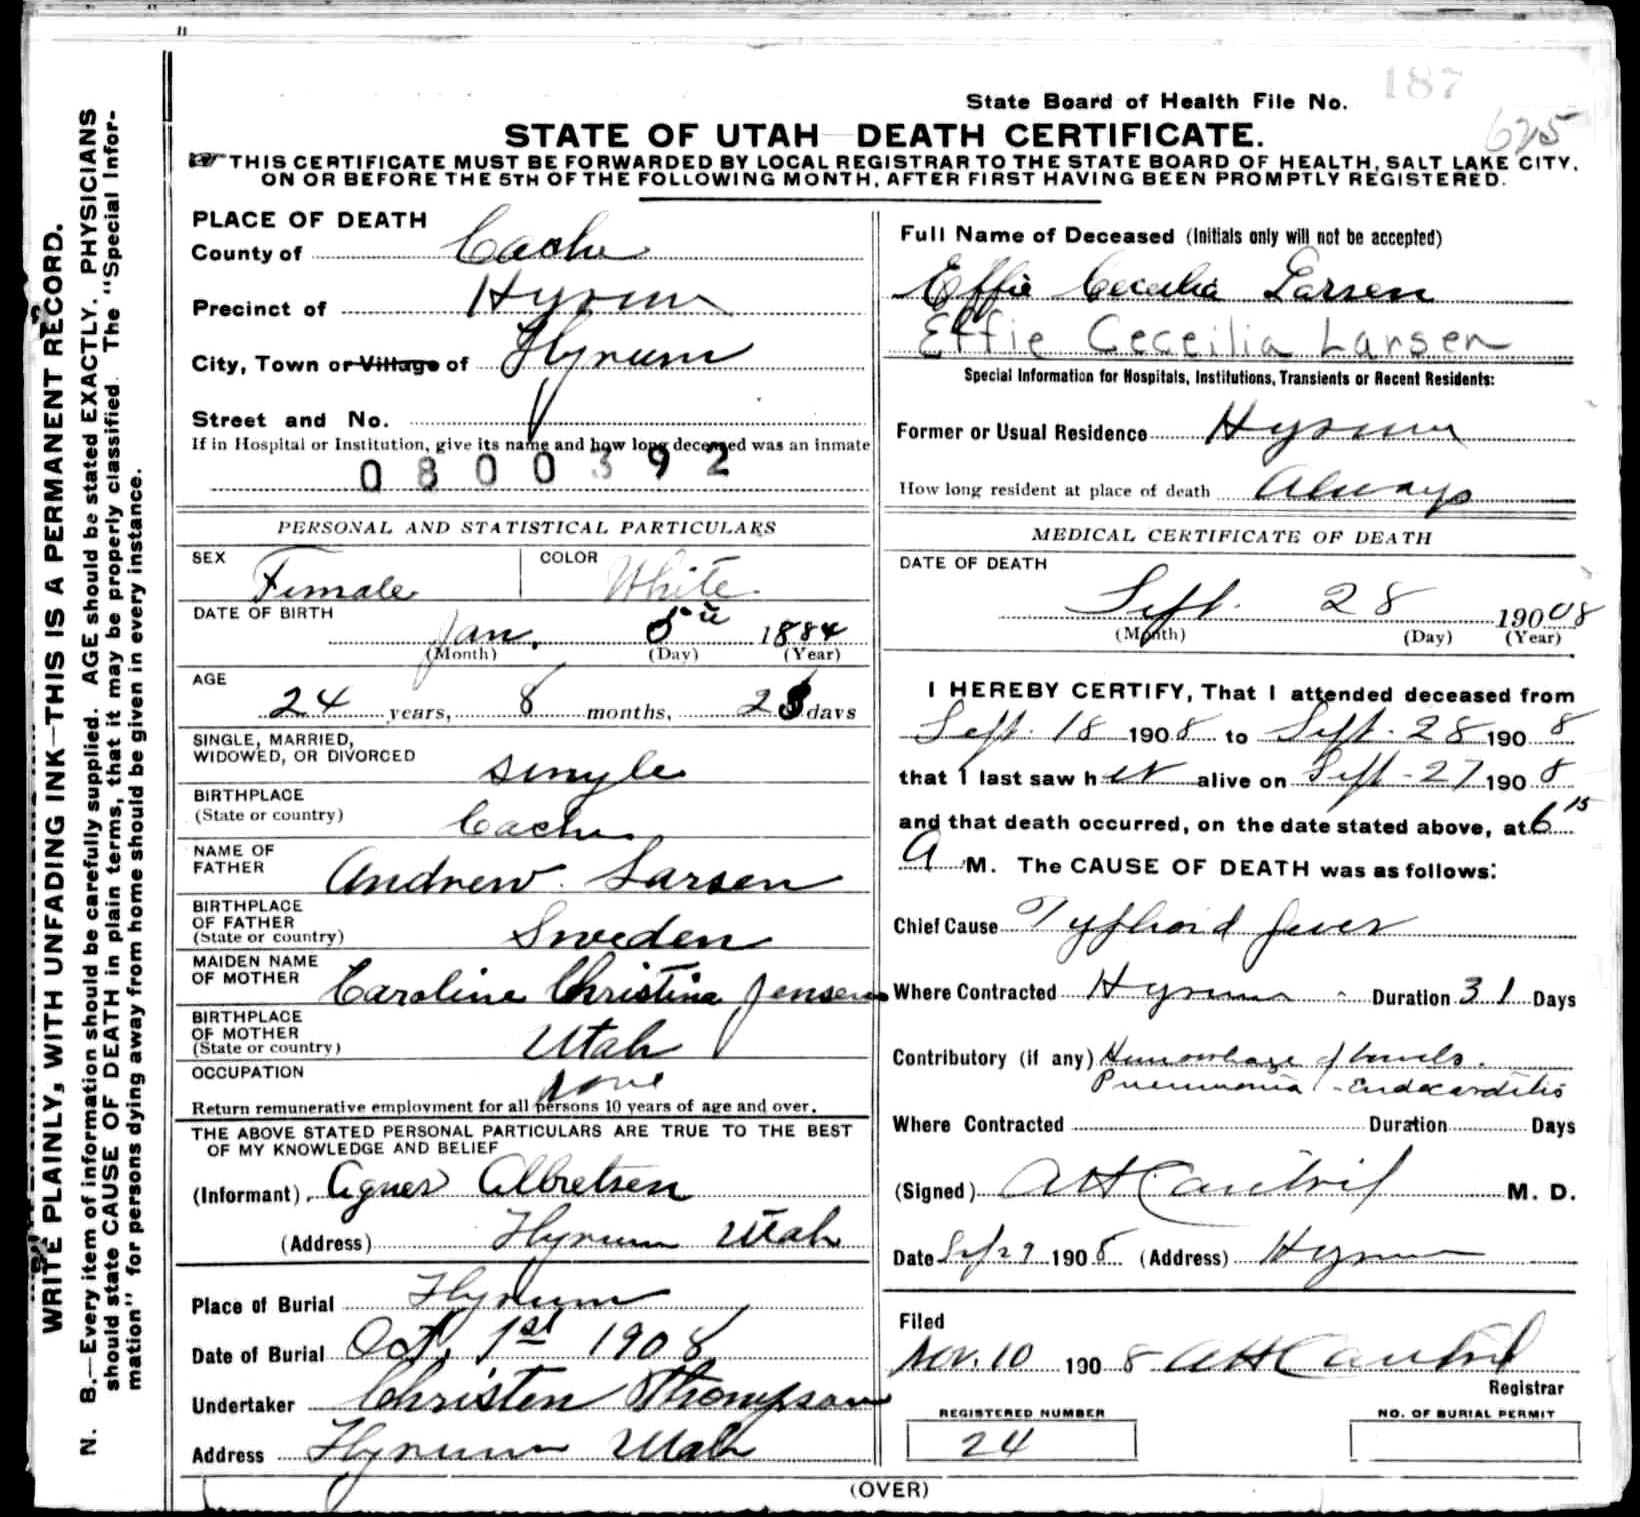 187
State Board of Health File No.
625
STATE OF UTAH DEATH CERTIFICATE.
THIS CERTIFICATE MUST BE FORWARDED BY LOCAL REGISTRAR TO THE STATE BOARD OF HEALTH, SALT LAKE CITY,
ON OR BEFORE THE 5TH OF THE FOLLOWING MONTH, AFTER FIRST HAVING BEEN PROMPTLY REGISTERED.
WRITE PLAINLY, WITH UNFADING INK—THIS IS A PERMANENT RECORD.
N. B.—Every item of information should be carefully supplied. AGE should be stated EXACTLY. PHYSICIANS
should state CAUSE OF DEATH in plain terms, that it may be properly classified. The "Special Infor-
mation" for persons dying away from home should be given in every instance.
PLACE OF DEATH
County of Cache
Precinct of Hyrum
City, Town or Village of Hyrum
Street and No.
If in Hospital or Institution, give its name and how long deceased was an inmate
0800392
PERSONAL AND STATISTICAL PARTICULARS
SEX Female COLOR White
DATE OF BIRTH
Jan. 5 1884
(Month) (Day) (Year)
AGE
24 years, 8 months, 23 days
SINGLE, MARRIED,
WIDOWED, OR DIVORCED single
BIRTHPLACE
(State or country) Cache
NAME OF
FATHER Andrew Larsen
BIRTHPLACE
OF FATHER
(State or country) Sweden
MAIDEN NAME
OF MOTHER Caroline Christina Jensen
BIRTHPLACE
OF MOTHER
(State or country) Utah
OCCUPATION None
Return remunerative employment for all persons 10 years of age and over.
THE ABOVE STATED PERSONAL PARTICULARS ARE TRUE TO THE BEST
OF MY KNOWLEDGE AND BELIEF
(Informant) Agnes Albretsen
(Address) Hyrum Utah
Place of Burial Hyrum
Date of Burial Oct. 1st 1908
Undertaker Christen Thompson
Address Hyrum Utah
Full Name of Deceased (Initials only will not be accepted)
Effie Cecelia Larsen
Effie Ceceilia Larsen
Special Information for Hospitals, Institutions, Transients or Recent Residents:
Former or Usual Residence Hyrum
How long resident at place of death Always
MEDICAL CERTIFICATE OF DEATH
DATE OF DEATH
Sept. 28 190 08
(Month) (Day) (Year)
I HEREBY CERTIFY, That I attended deceased from
Sept. 18 1908 to Sept. 28 1908
that I last saw her alive on Sept - 27 1908
and that death occurred, on the date stated above, at 6 15
A M. The CAUSE OF DEATH was as follows:
Chief Cause Typhoid fever
Where Contracted Hyrum Duration 31 Days
Contributory (if any) Hemorrhage of bowels.
Pneumonia - Endocarditis
Where Contracted Duration Days
(Signed) M. D.
Date Sep 29 1908 (Address) Hyrum
Filed
Nov. 10 1908
Registrar
REGISTERED NUMBER
24
NO. OF BURIAL PERMIT
(OVER)